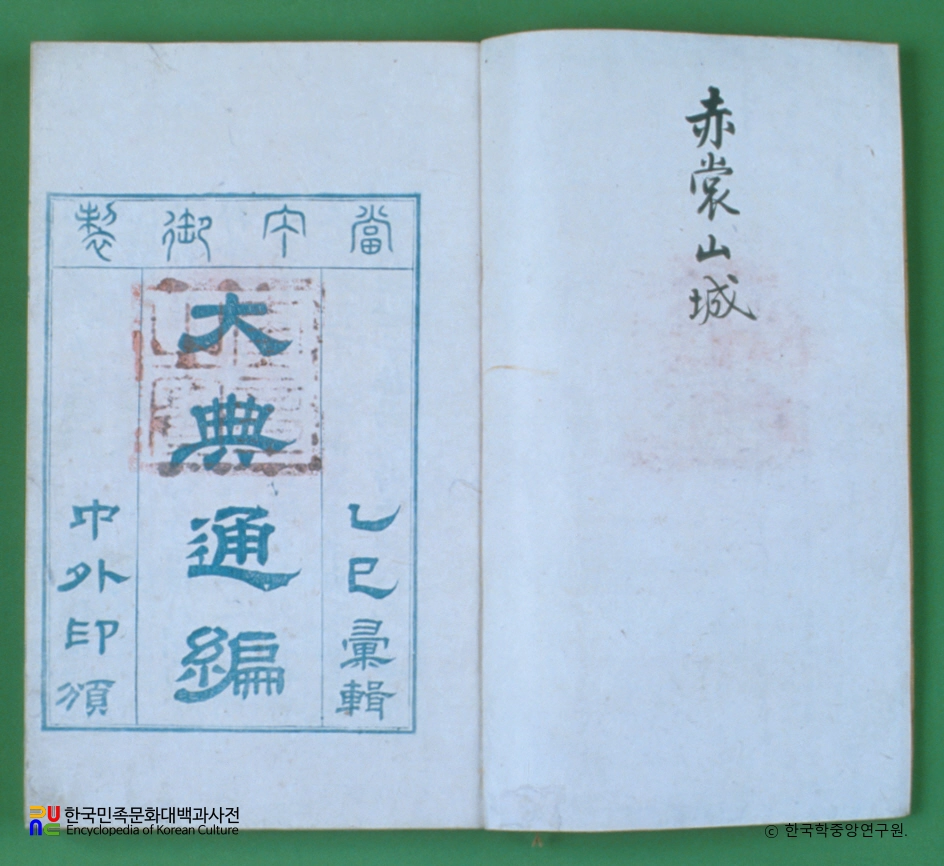 赤裳山城
當宁御製
乙巳彙輯
大典通編
中外印頒
한국민족문화대백과사전
Encyclopedia of Korean Culture
© 한국학중앙연구원.